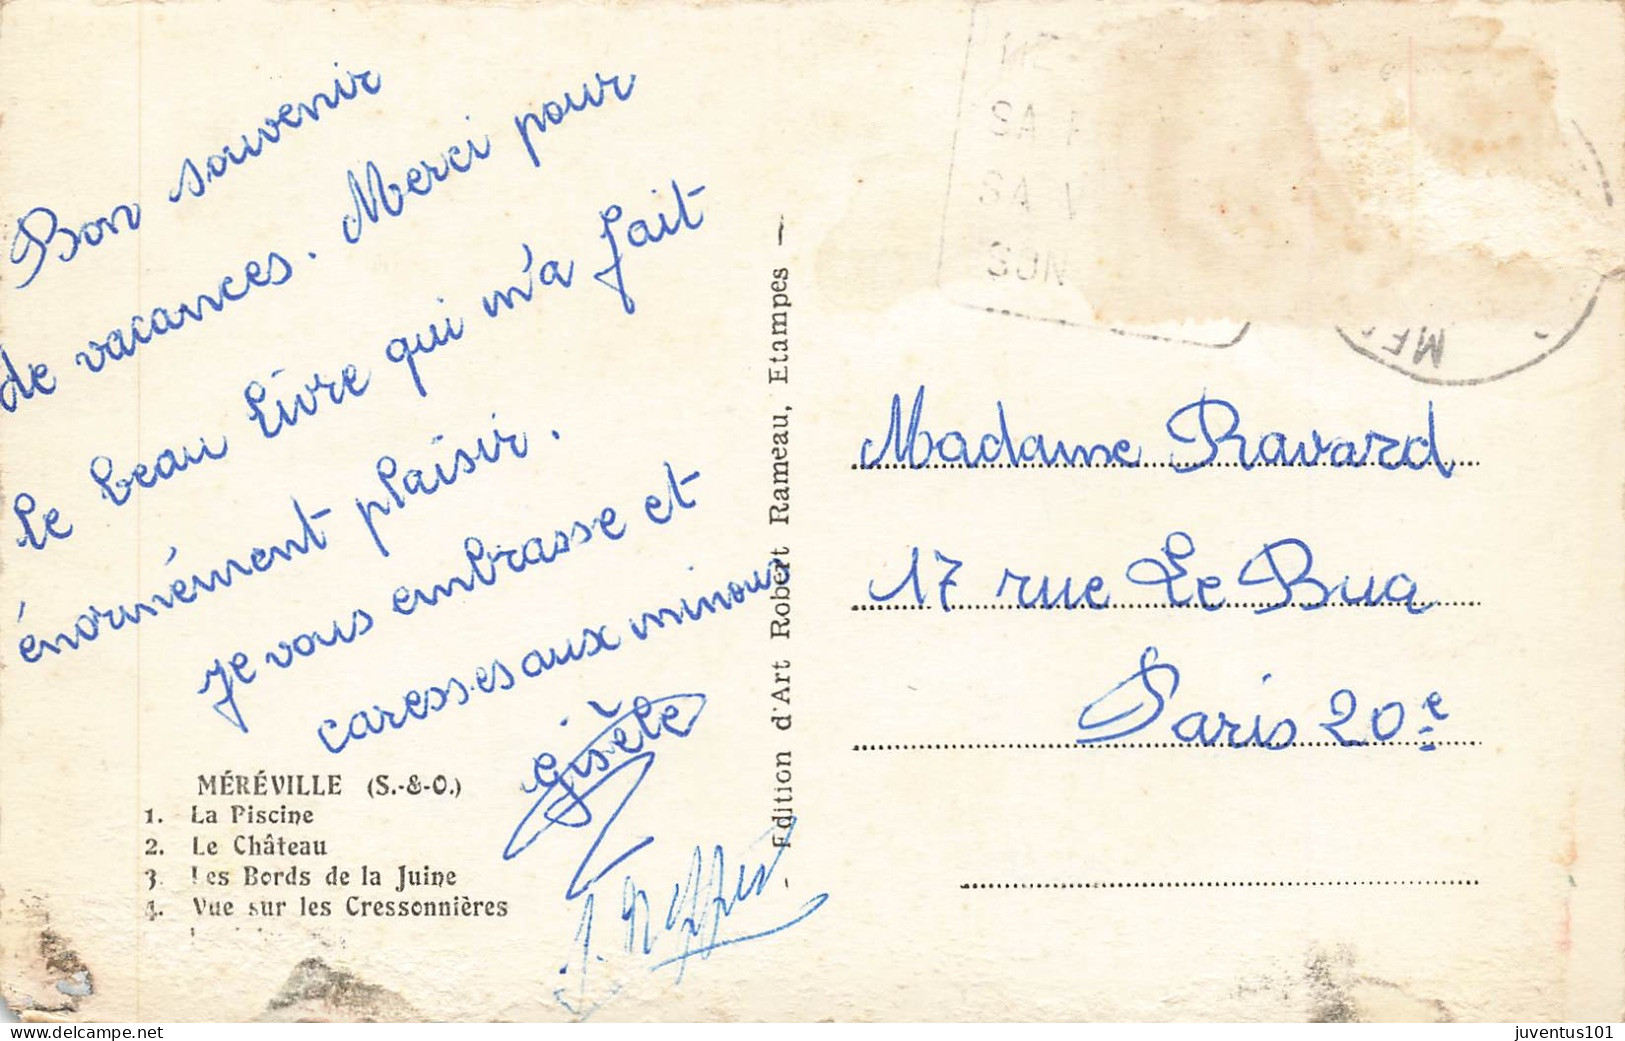 Bon souvenir
de vacances. Merci pour
le beau livre qui m'a fait
énormément plaisir.
Je vous embrasse et
caresses aux minous
Gisèle
MÉRÉVILLE (S.-&-O.)
1. La Piscine
2. Le Château
3. Les Bords de la Juine
4. Vue sur les Cressonnières
Edition d'Art Robert Rameau, Etampes
SA
SA V
SON
Madame Ravard
17 rue Le Bua
Paris 20e
www.delcampe.net
juventus101